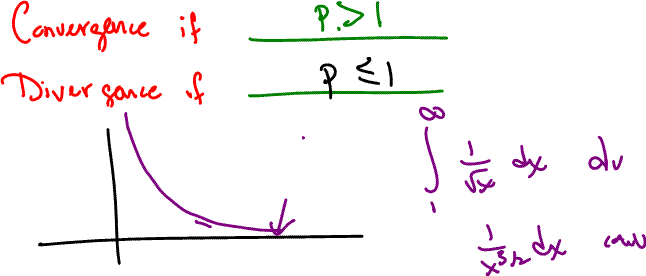 Convergance if p > 1
Divergance if p ≤ 1
∫₁^∞ 1/√x dx dv
1/x^3/2 dx conv